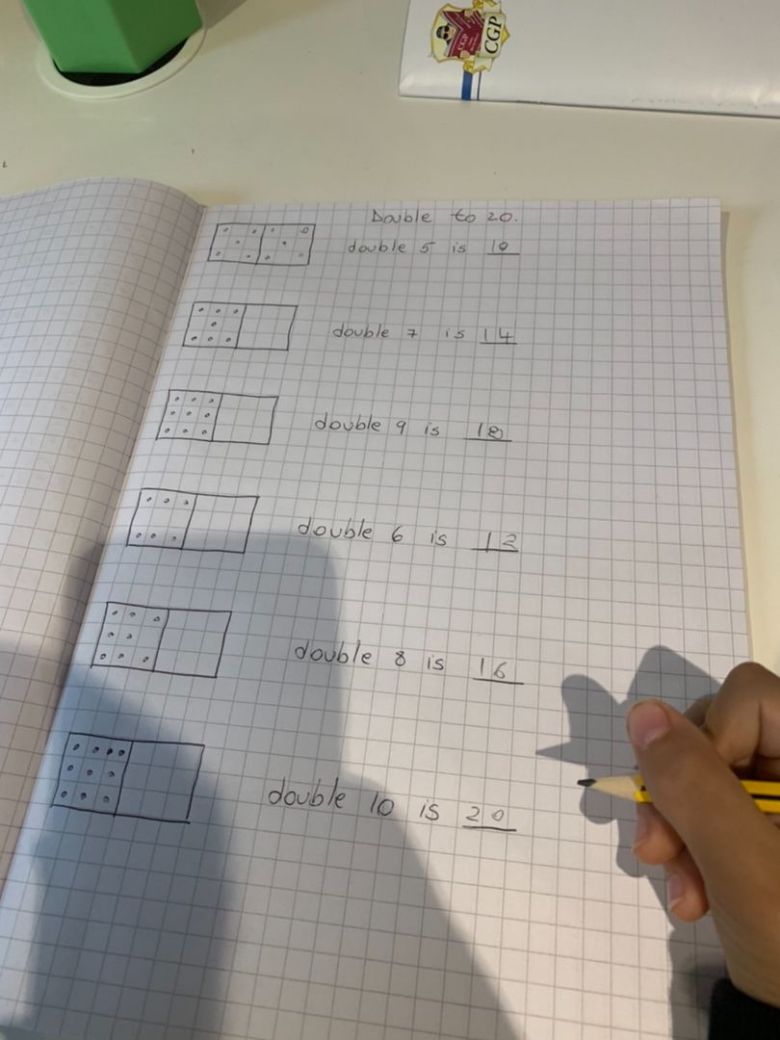 CGP
CGP
Double to 20.
double 5 is 10
double 7 is 14
double 9 is 18
double 6 is 12
double 8 is 16
double 10 is 20